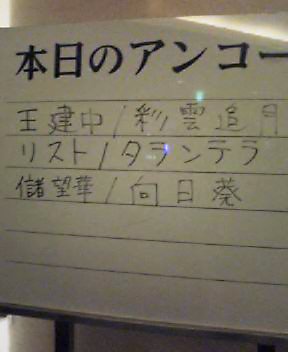 本日のアンコー
王建中/彩雲追月
リスト/タランテラ
儲望華/向日葵